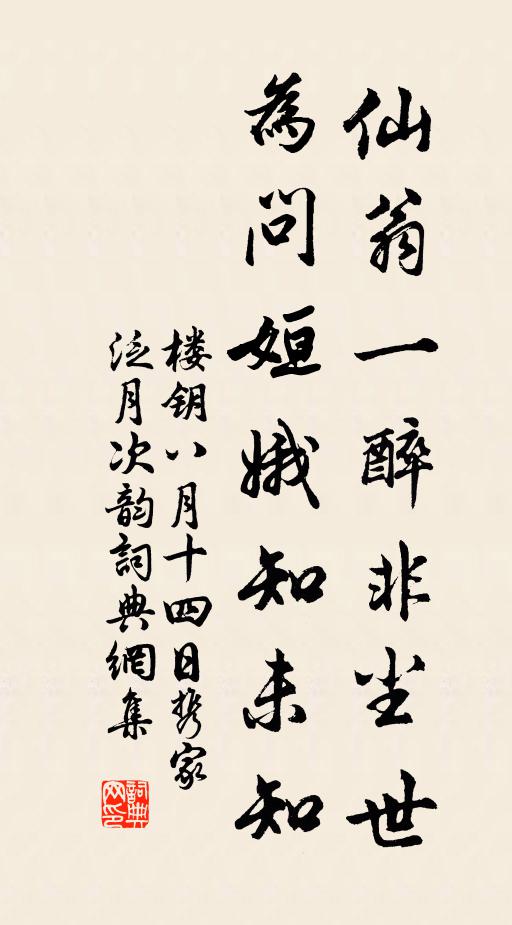 仙翁一醉非尘世
為问姮娥知未知
楼钥八月十四日携家
泛月次韵詞典網集
詞典网印